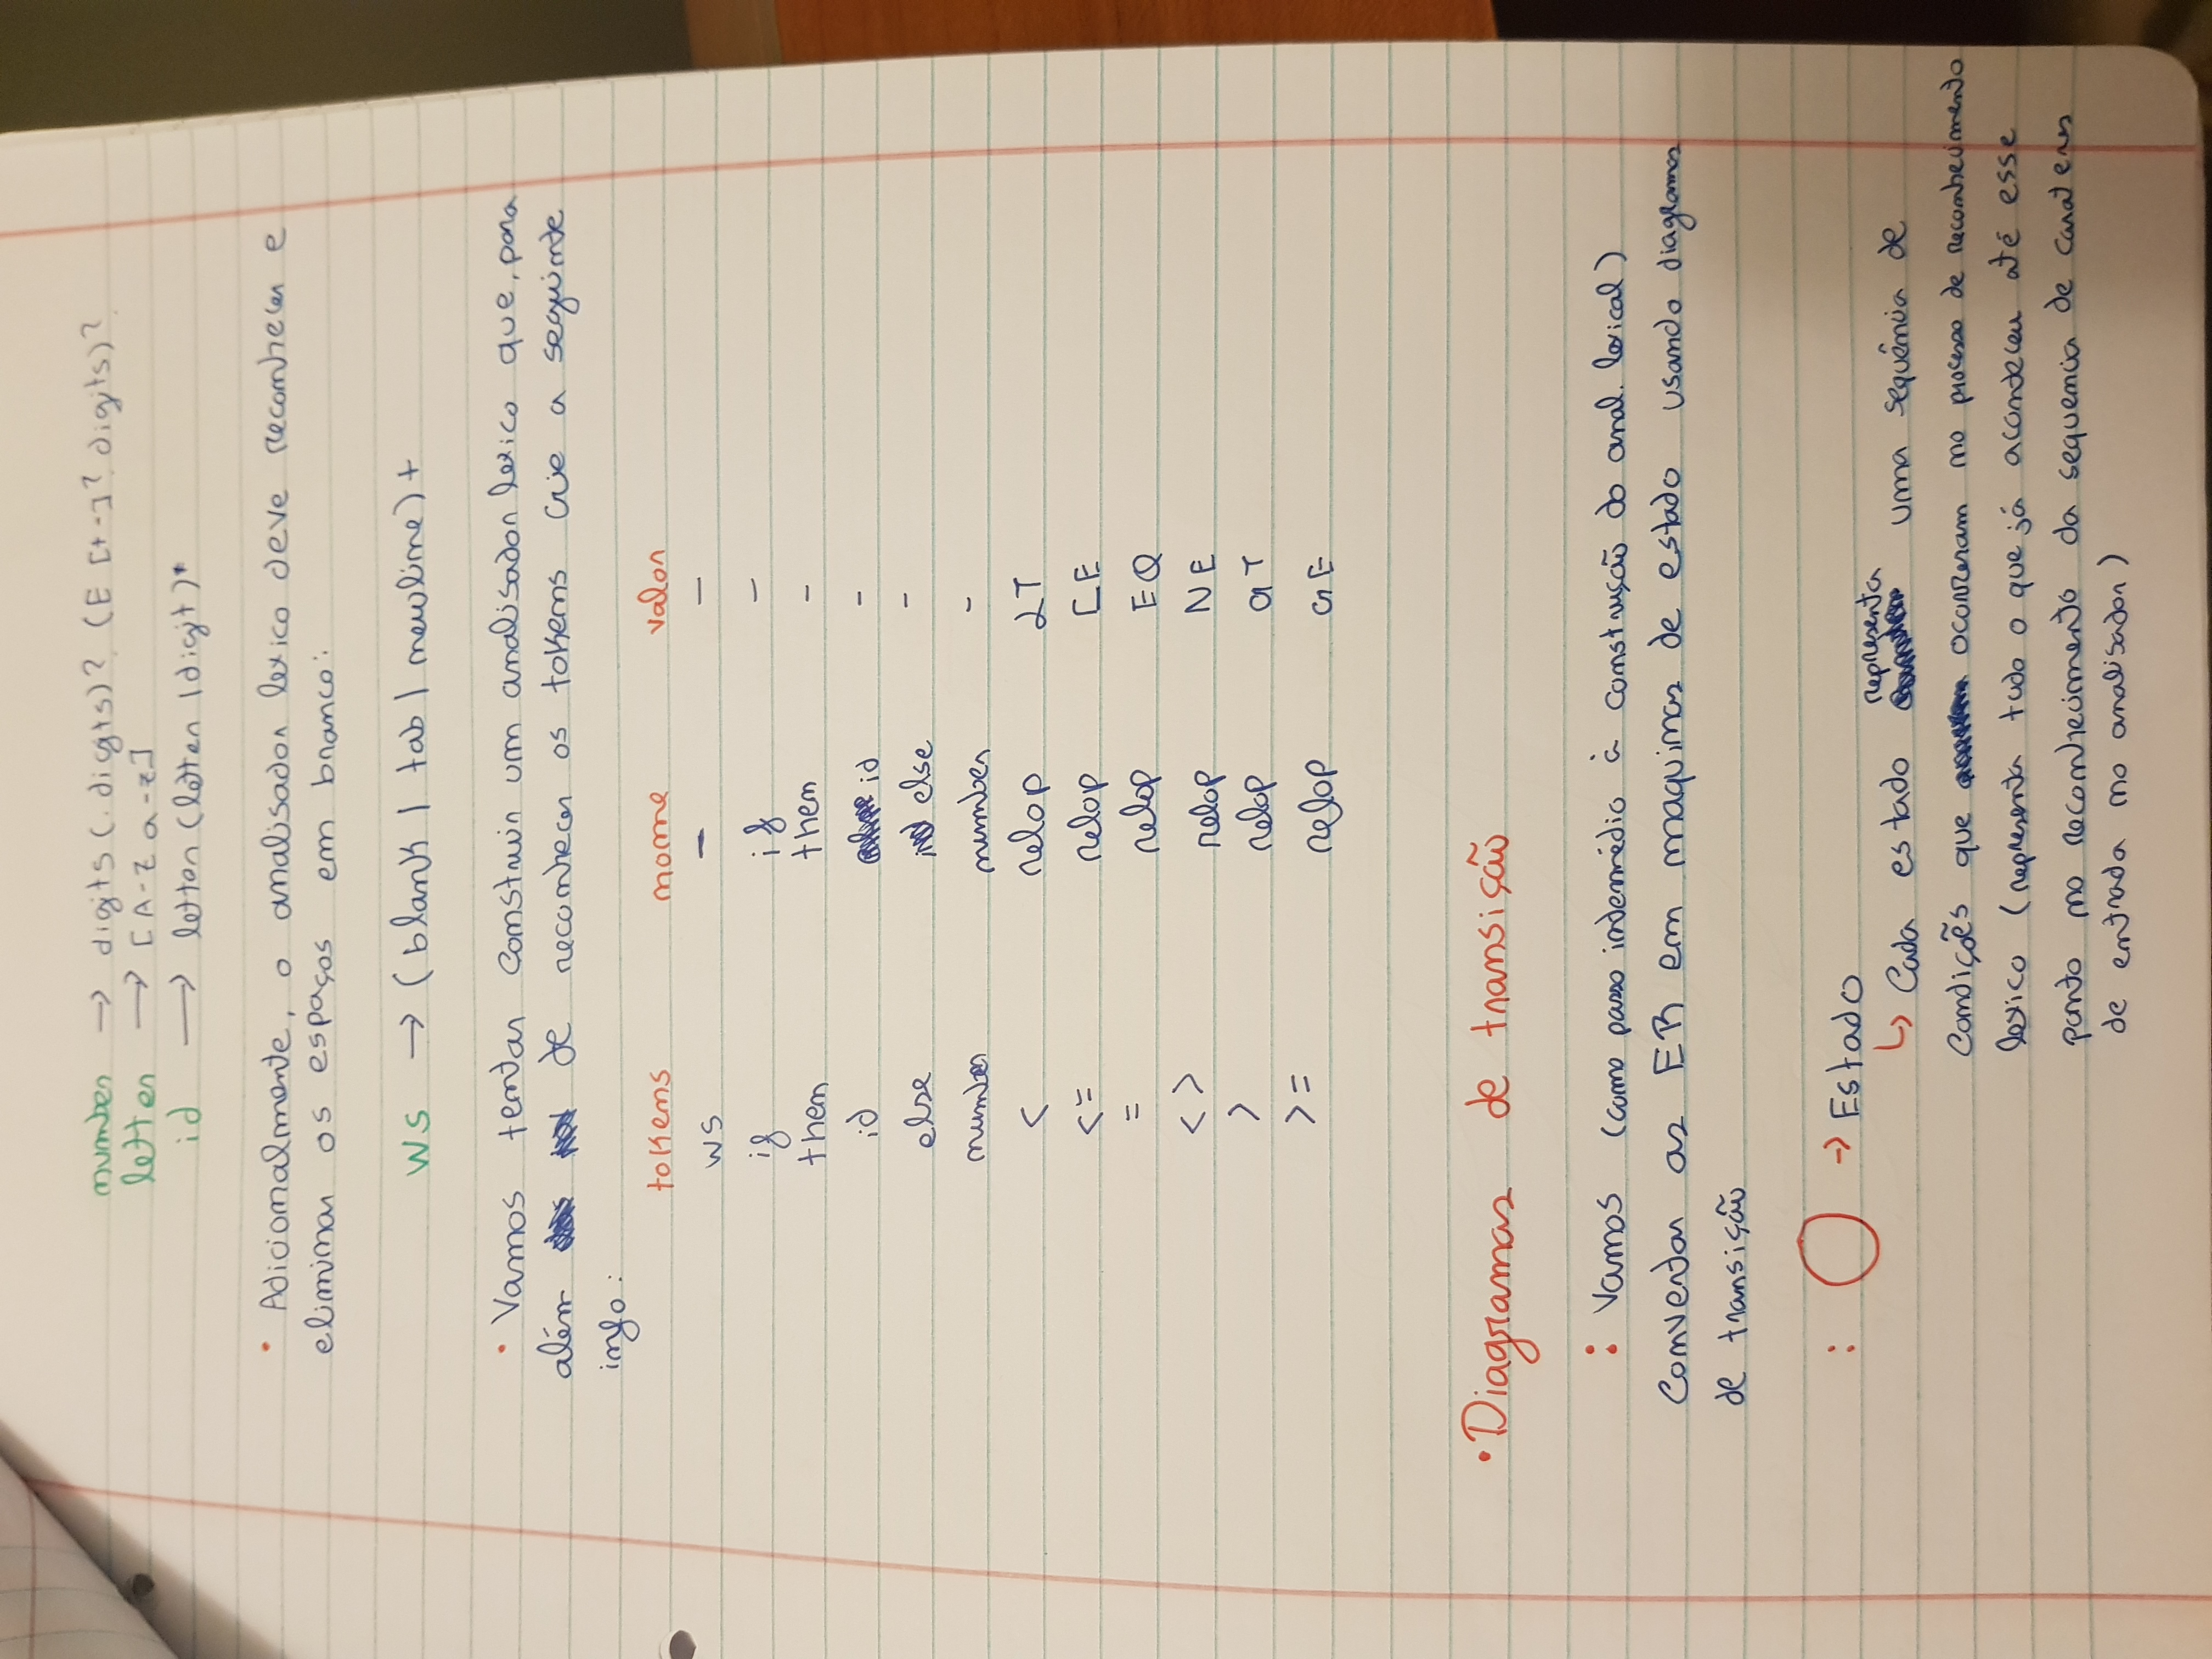 number → digits (. digits)? (E [+-]? digits)?
letter → [A-Z a-z]
id → letter (letter | digit)*
• Adicionalmente, o analisador lexico deve reconhecer e
eliminar os espaços em branco:
WS → (blank | tab | newline)+
• Vamos tentar construir um analisador lexico que, para
além de reconhecer os tokens crie a seguinte
info:
tokens nome valor
ws - -
if if -
then then -
id id -
else else -
number number -
< relop LT
<= relop LE
= relop EQ
<> relop NE
> relop GT
>= relop GE
• Diagramas de transição
: Vamos (como passo intermédio à construção do anal. lexical)
Converter as ER em maquinas de estado usando diagramas
de transição
: → Estado
↳ Cada estado representa uma sequência de
condições que ocorreram no processo de reconhecimento
lexico (representa tudo o que já aconteceu até esse
ponto no reconhecimento da sequencia de carateres
de entrada no analisador)